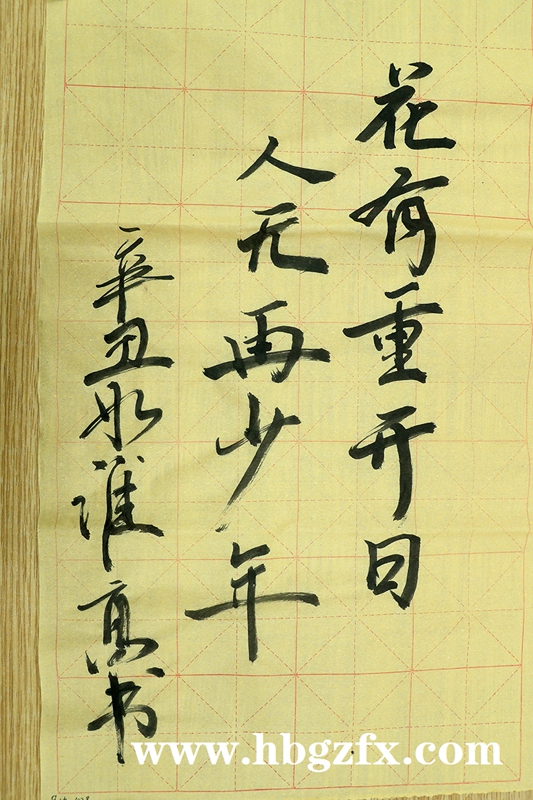 花有重开日
人无再少年
辛丑 书
www.hbgzfx.com